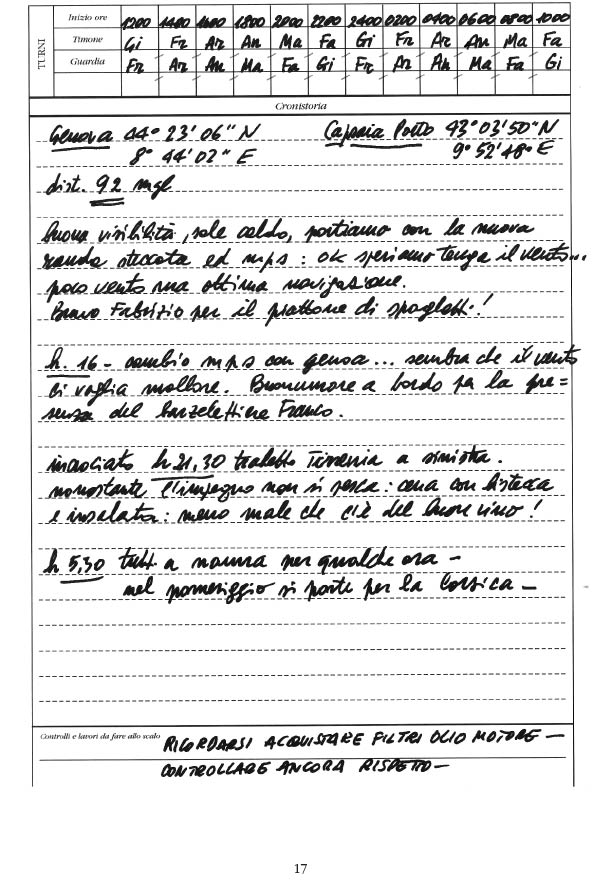 TURNI
Inizio ore 1200 1400 1600 1800 2000 2200 2400 0200 0400 0600 0800 1000
Timone Gi Fr Ar An Ma Fa Gi Fr Ar An Ma Fa
Guardia Fr Ar An Ma Fa Gi Fr Ar An Ma Fa Gi
Cronistoria
Genova 44° 23' 06" N Capraia Porto 43° 03' 50" N
8° 44' 02" E 9° 52' 48" E
dist. 92 mgl
buona visibilità, sole caldo, partiamo con la nuova
randa steccata ed mps : ok speriamo tenga il vento...
poco vento ma ottima navigazione.
Bravo Fabrizio per il piattone di spaghetti!
h. 16 - cambio mps con genoa... sembra che il vento
ci voglia mollare. Buonumore a bordo per la pre=
senza del barzellettiere Franco.
incrociato h 21,30 traghetto Tirrenia a sinistra.
nonostante l'impegno non si pesca : cena con bistecca
e insalata : meno male che c'è del buon vino!
h 5,30 tutti a nanna per qualche ora -
nel pomeriggio si parte per la Corsica -
Controlli e lavori da fare allo scalo RICORDARSI ACQUISTARE FILTRI OLIO MOTORE -
CONTROLLARE ANCORA RISPETTO -
17